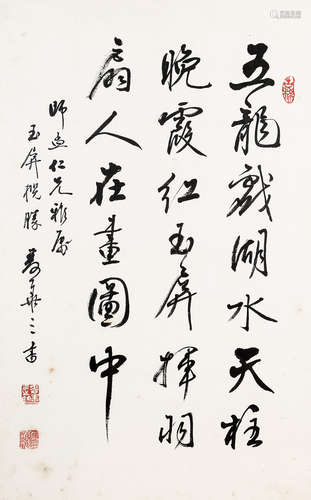 五龍戲湖水天柱
晚霞紅玉屏揮羽
扇人在畫圖中
師仁兄雅屬
玉屏攬勝 書